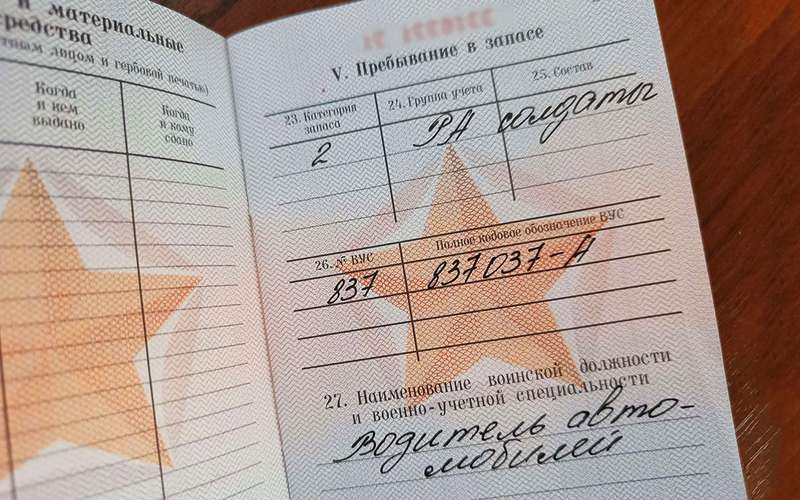 и материальные
средства
тным лицом и гербовой печатью)
Когда
и кем
выдано
Когда
и кому
сдано
V. Пребывание в запасе
23. Категория
запаса
24. Группа учета
25. Состав
2
РА
солдаты
26. № ВУС
Полное кодовое обозначение ВУС
837
837037-А
27. Наименование воинской должности
и военно-учетной специальности
Водитель авто-
мобилей